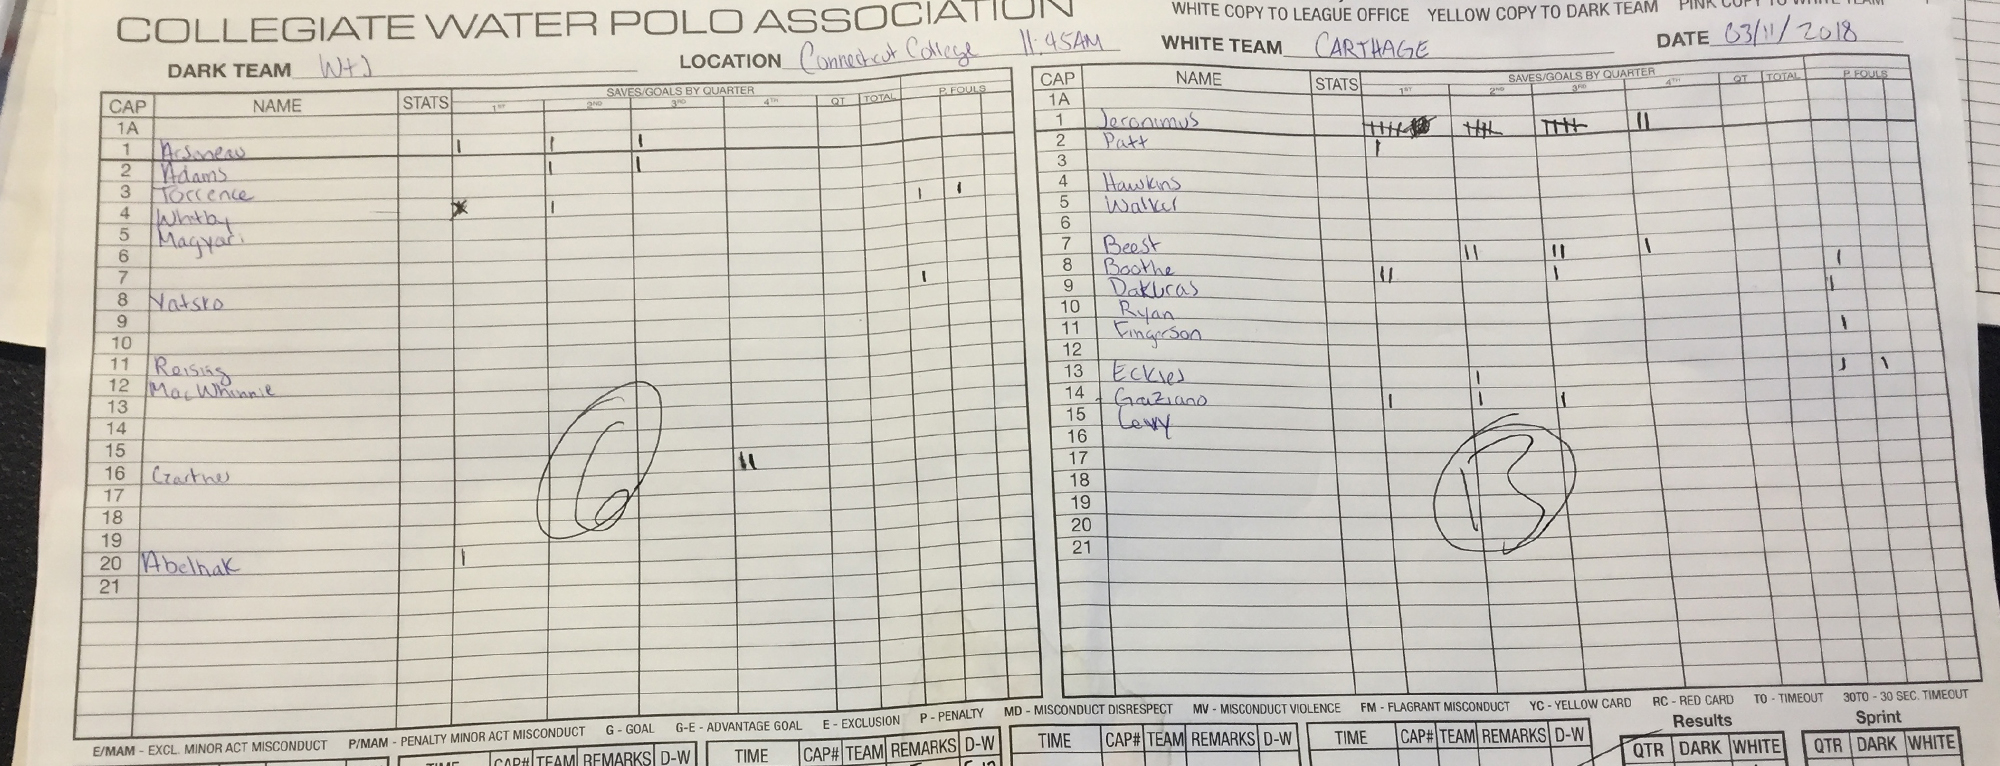 COLLEGIATE WATER POLO ASSOCIATION
WHITE COPY TO LEAGUE OFFICE YELLOW COPY TO DARK TEAM PINK COPY TO WHITE TEAM
DARK TEAM W+J LOCATION Connecticut College 11:45AM WHITE TEAM CARTHAGE DATE 03/11/2018
CAP NAME STATS SAVES/GOALS BY QUARTER P. FOULS
1ST 2ND 3RD 4TH QT TOTAL
1A
1 Arseneau
2 Adams
3 Torrence
4 Whitby
5 Magyari
6
7
8 Yatsko
9
10
11 Reising
12 MacWhinnie
13
14
15
16 Czartner
17
18
19
20 Abelhak
21
6
CAP NAME STATS SAVES/GOALS BY QUARTER P. FOULS
1ST 2ND 3RD 4TH QT TOTAL
1A
1 Jeronimus
2 Patt
3
4 Hawkins
5 Walker
6
7 Beest
8 Boothe
9 Dakuras
10 Ryan
11 Fingerson
12
13 Eckles
14 Graziano
15 Levy
16
17
18
19
20
21
13
E/MAM - EXCL. MINOR ACT MISCONDUCT P/MAM - PENALTY MINOR ACT MISCONDUCT G - GOAL G-E - ADVANTAGE GOAL E - EXCLUSION P - PENALTY MD - MISCONDUCT DISRESPECT MV - MISCONDUCT VIOLENCE FM - FLAGRANT MISCONDUCT YC - YELLOW CARD RC - RED CARD TO - TIMEOUT 30TO - 30 SEC. TIMEOUT
Results Sprint
TIME CAP# TEAM REMARKS D-W TIME CAP# TEAM REMARKS D-W TIME CAP# TEAM REMARKS D-W TIME CAP# TEAM REMARKS D-W QTR DARK WHITE QTR DARK WHITE